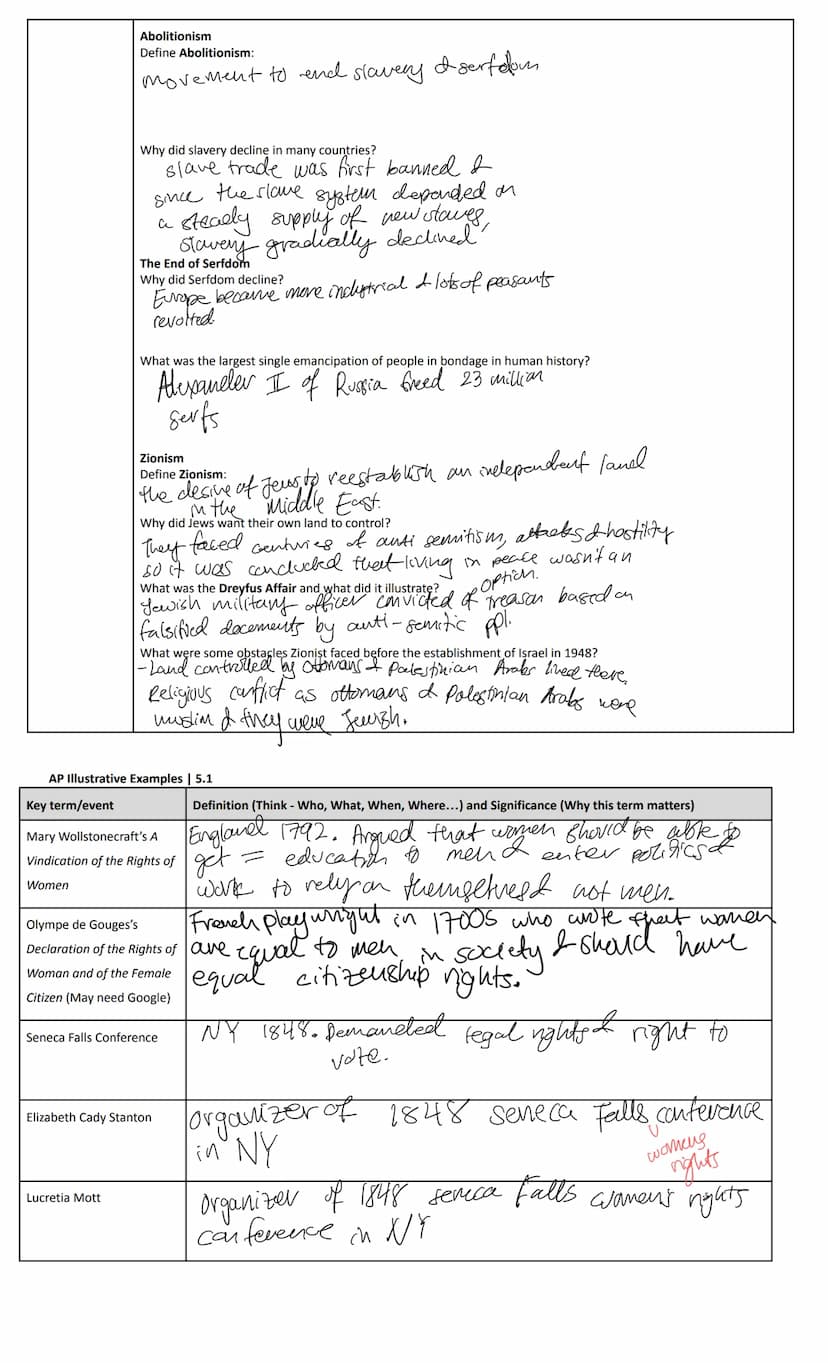 Abolitionism
Define Abolitionism:
movement to end slavery & serfdom
Why did slavery decline in many countries?
slave trade was first banned &
since the slave system depended on
a steady supply of new slaves,
slavery gradually declined
The End of Serfdom
Why did Serfdom decline?
Europe became more industrial & lots of peasants
revolted.
What was the largest single emancipation of people in bondage in human history?
Alexander II of Russia freed 23 million
serfs
Zionism
Define Zionism:
the desire of Jews to reestablish an independent land
in the Middle East.
Why did Jews want their own land to control?
They faced centuries of anti semitism, attacks & hostility
so it was concluded that living in peace wasn't an
option.
What was the Dreyfus Affair and what did it illustrate?
Jewish military officer convicted of treason based on
falsified documents by anti-semitic ppl.
What were some obstacles Zionist faced before the establishment of Israel in 1948?
- Land controlled by Ottomans & Palestinian Arabs lived there,
Religious conflict as ottomans & Palestinian Arabs were
muslim & they were Jewish.
AP Illustrative Examples | 5.1
Key term/event
Definition (Think - Who, What, When, Where...) and Significance (Why this term matters)
Mary Wollstonecraft's A
Vindication of the Rights of
Women
England 1792. Argued that women should be able to
get = education to men & enter politics &
work to rely on themselves & not men.
Olympe de Gouges's
Declaration of the Rights of
Woman and of the Female
Citizen (May need Google)
French playwright in 1700s who wrote that women
are equal to men in society & should have
equal citizenship rights.
Seneca Falls Conference
NY 1848. Demanded legal rights & right to
vote.
Elizabeth Cady Stanton
organizer of 1848 seneca Falls conference
in NY
womens
rights
Lucretia Mott
organizer of 1848 seneca Falls women's rights
conference in NY